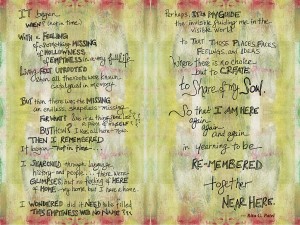 IT began...
WHEN?
WITH A FEELING
of something MISSING
of HOLLOWNESS
of EMPTINESS in a very full life
LONG AGO UPROOTED
when all the roots were known,
catalogued in memory.
But then there was the MISSING
an endless, shapeless missing
FOR WHAT?
a piece of myself
BUT HOW?
THEN I REMEMBERED
It began
I SEARCHED through language,
history and people... there were
GLIMPSES but no feeling of HERE
of HOME, my home, but I have a home
I WONDERED did it NEED to be filled
THIS EMPTINESS WITH NO NAME
Perhaps, IT IS MY GUIDE
the invisible guiding me in the
visible world
to THAT THOSE PLACES, FACES,
FEELINGS and IDEAS
Where there is no choice
but to CREATE
to Share of my SOUL.
So that I AM HERE
again
again
and again
in yearning to be
RE-MEMBERED
together
NEAR HERE.